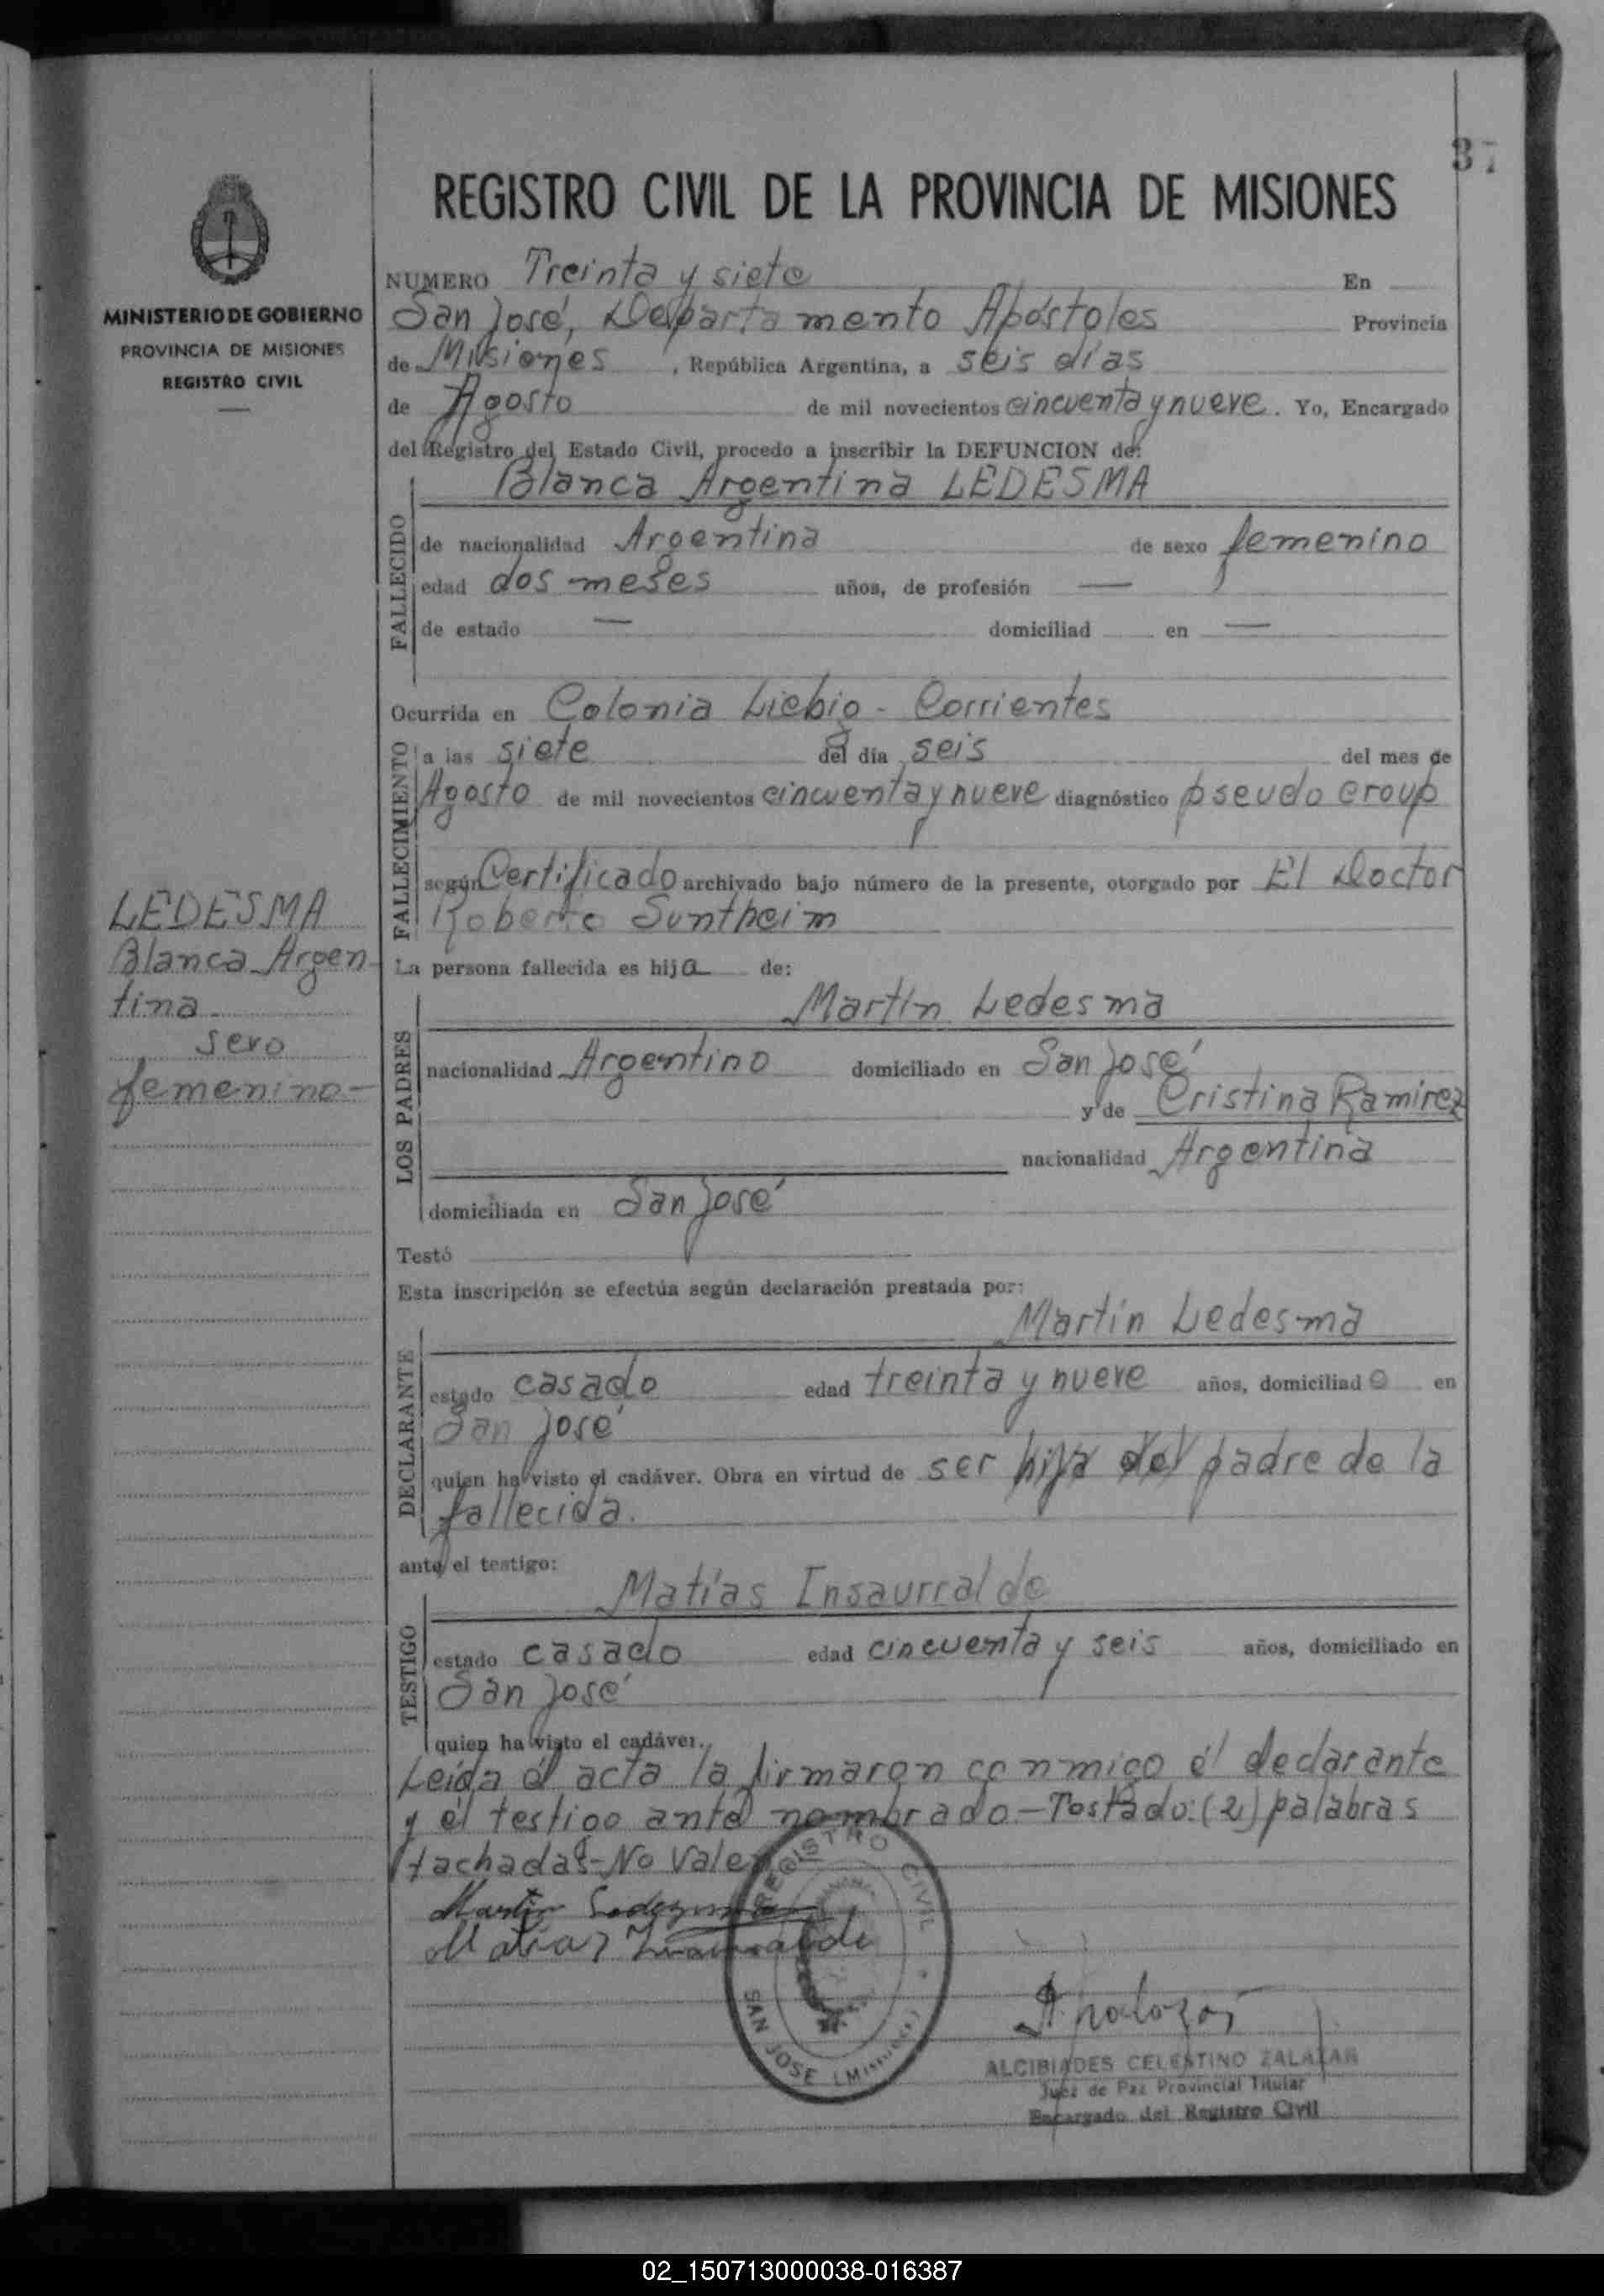 37
REGISTRO CIVIL DE LA PROVINCIA DE MISIONES
MINISTERIO DE GOBIERNO
PROVINCIA DE MISIONES
REGISTRO CIVIL
NUMERO Treinta y siete En
San José, Departamento Apóstoles Provincia
de Misiones, República Argentina, a seis días
de Agosto de mil novecientos cincuenta y nueve. Yo, Encargado
del Registro del Estado Civil, procedo a inscribir la DEFUNCION de:
Blanca Argentina LEDESMA
FALLECIDO
de nacionalidad Argentina de sexo femenino
edad dos meses años, de profesión —
de estado — domiciliad en —
Ocurrida en Colonia Liebig - Corrientes
FALLECIMIENTO
a las siete del día seis del mes de
Agosto de mil novecientos cincuenta y nueve diagnóstico pseudo croup
según Certificado archivado bajo número de la presente, otorgado por El Doctor
Roberto Suntheim
LEDESMA
Blanca Argen
tina
sexo
femenino-
La persona fallecida es hija de:
Martín Ledesma
LOS PADRES
nacionalidad Argentino domiciliado en San José
y de Cristina Ramirez
nacionalidad Argentina
domiciliada en San José
Testó
Esta inscripción se efectúa según declaración prestada por:
Martín Ledesma
DECLARANTE
estado casado edad treinta y nueve años, domiciliado en
San José
quien ha visto el cadáver. Obra en virtud de ser hija del padre de la
fallecida.
ante el testigo:
Matías Insaurralde
TESTIGO
estado casado edad cincuenta y seis años, domiciliado en
San José
quien ha visto el cadáver.
Leída el acta la firmaron conmigo él declarante
y él testigo ante nombrado.-Testado: (2) palabras
tachadas-No Valen
Martin Ledezma
Matias Insaurralde
REGISTRO CIVIL
SAN JOSE (Misiones)
ALCIBIADES CELESTINO ZALAZAR
Juez de Paz Provincial Titular
Encargado del Registro Civil
02_150713000038-016387